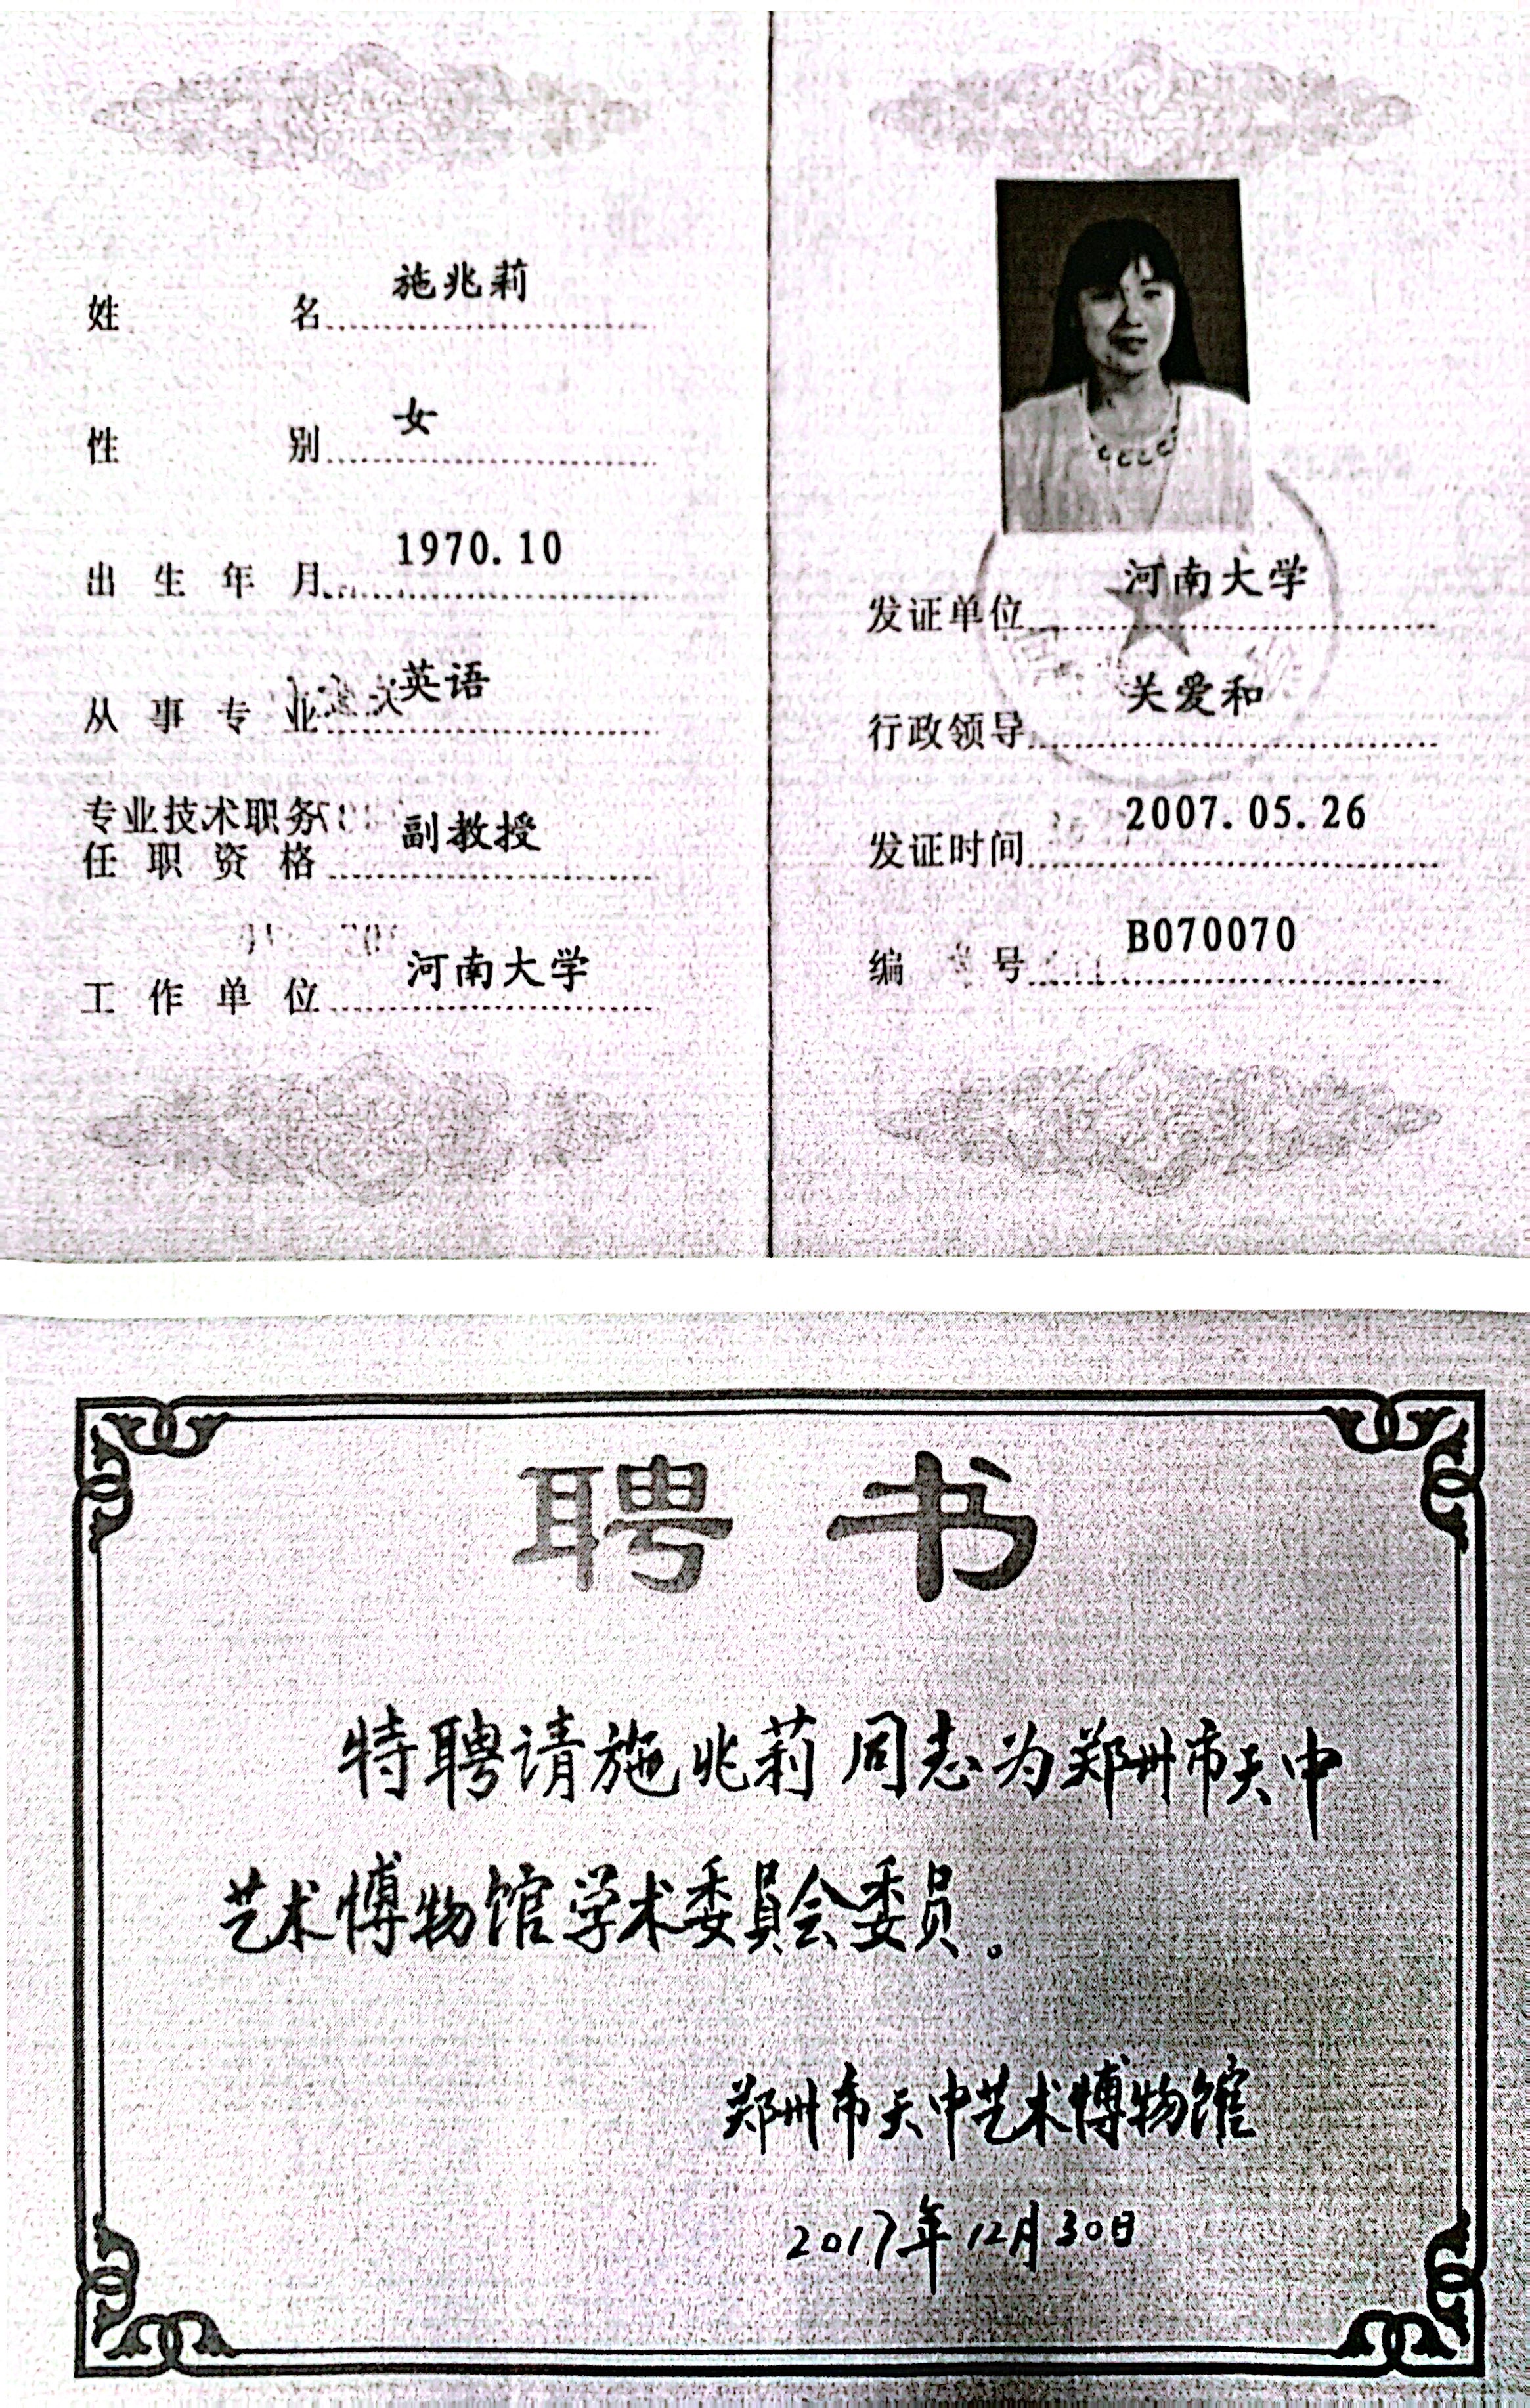 姓名 施兆莉
性别 女
出生年月 1970.10
从事专业 英语
专业技术职务
任职资格 副教授
工作单位 河南大学
发证单位 河南大学
行政领导 关爱和
发证时间 2007.05.26
编号 B070070
聘书
特聘请施兆莉同志为郑州市天中
艺术博物馆学术委員会委员。
郑州市天中艺术博物馆
2017年12月30日